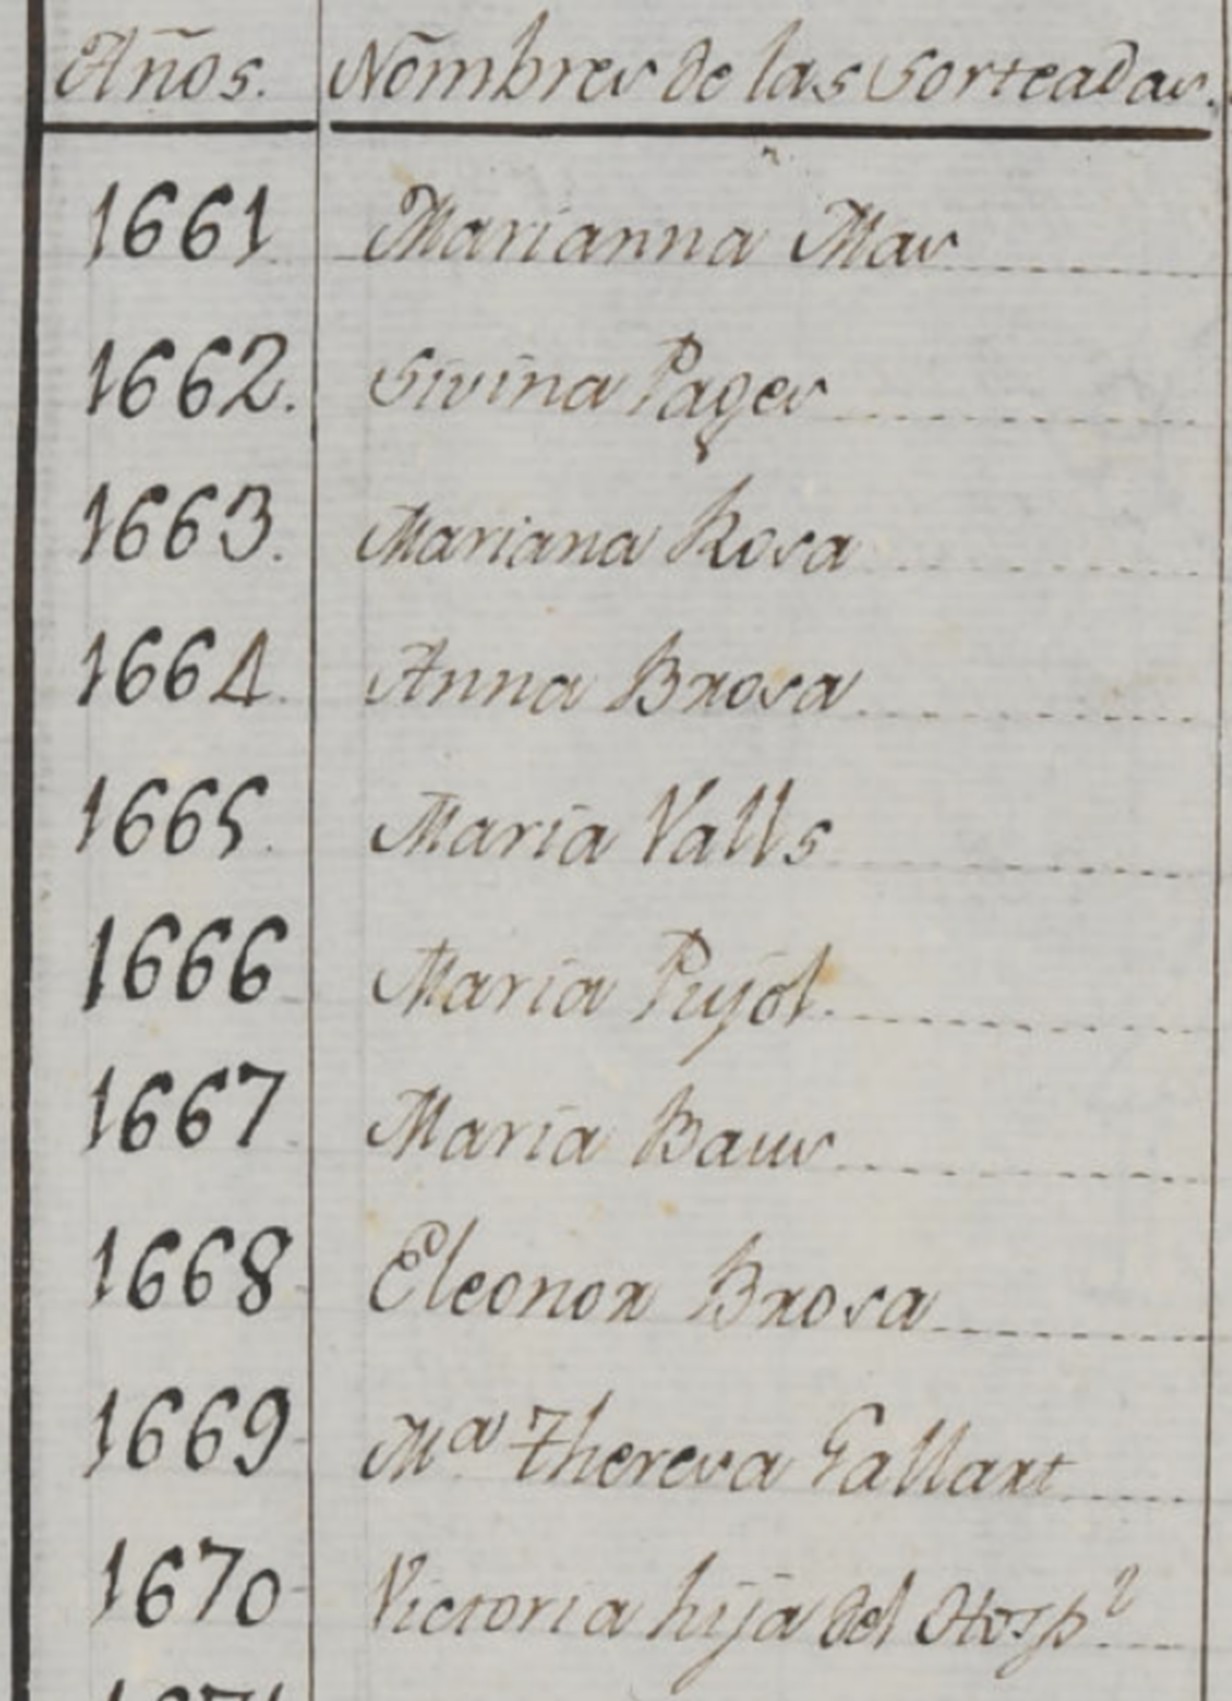 Años. Nombres de las Sorteadas.
1661 Marianna Mas
1662. Sivina Pages
1663. Mariana Rosa
1664. Anna Brosa
1665. Maria Valls
1666 Maria Pujol
1667 Maria Baus
1668 Eleonor Brosa
1669 Mª Theresa Gallart
1670 Victoria hija del Hospl